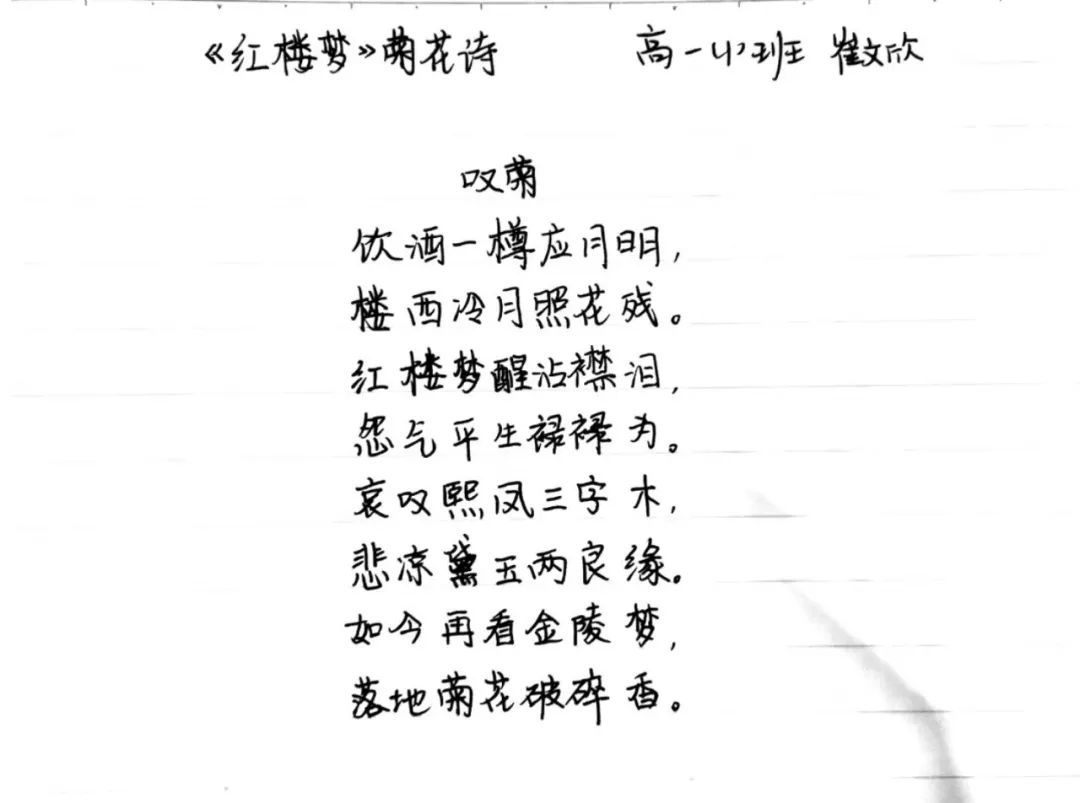 《红楼梦》菊花诗 高一(1)班 崔文欣
叹菊
饮酒一樽应月明,
楼西冷月照花残。
红楼梦醒沾襟泪,
怨气平生禄禄为。
哀叹熙凤三字木,
悲凉黛玉两良缘。
如今再看金陵梦,
落地菊花破碎香。